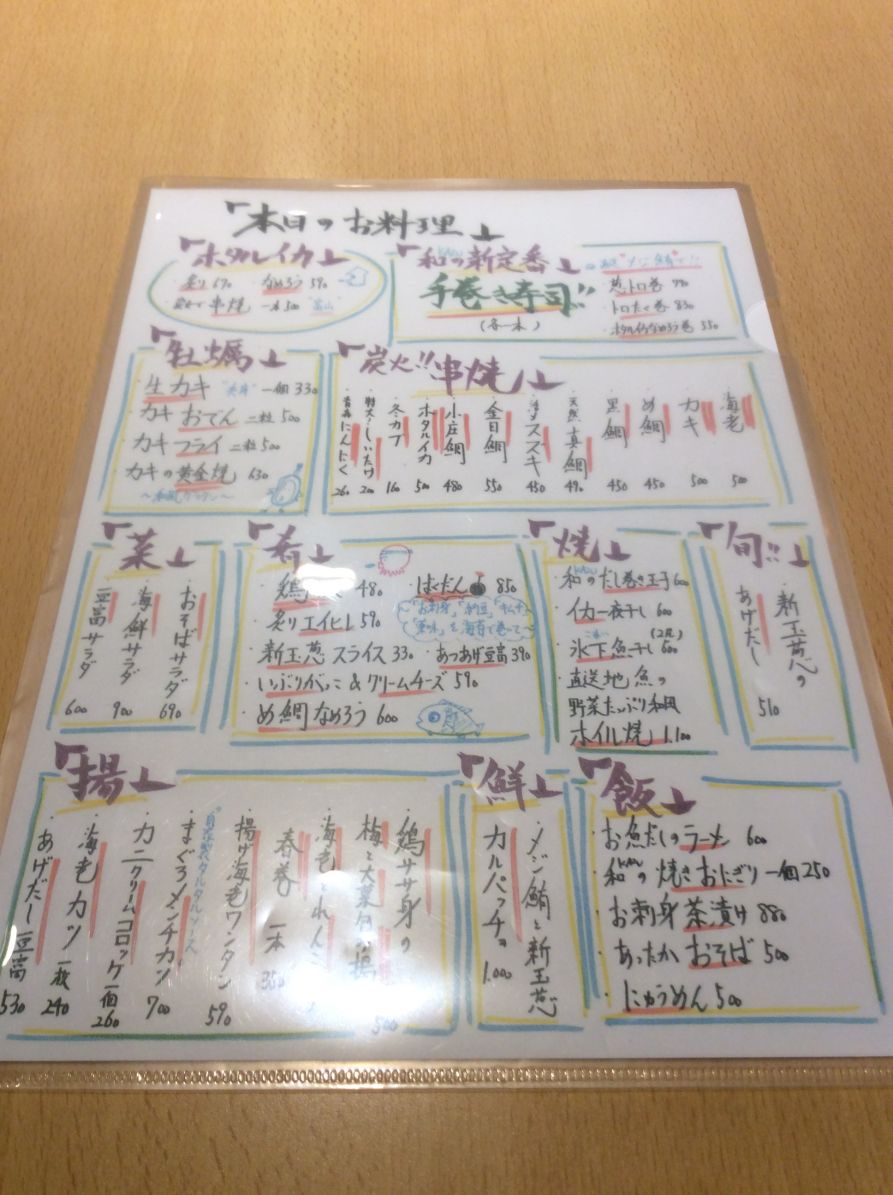 「本日のお料理」
「ホタルイカ」
・炙り 690 ・なめろう 590
串焼 一本500 "富山"
「和の新定番」
手巻き寿司!!
(各一本)
・葱トロ巻 790
・トロたく巻 830
・ホタルイカなめろう巻 550
「牡蠣」
・生カキ 一個330
・カキおでん 二粒500
・カキフライ 二粒500
・カキの黄金焼 630
～和風グラタン～
「炭火!!串焼」
・海老 500
・カキ 500
・め鯛 450
・黒鯛 450
・天然真鯛 490
・活〆スズキ 450
・金目鯛 550
・小庄鯛 480
・ホタルイカ 500
・冬カブ 160
・特大!しいたけ 200
・青森にんにく 260
「菜」
・おそばサラダ 690
・海鮮サラダ 900
・豆富サラダ 600
「肴」
・鶏 480 ・ばくだん 850
「お刺身」「納豆」「キムチ」
「薬味」を海苔で巻いて
・炙りエイヒレ 590
・新玉葱スライス 330 ・あつあげ豆富 390
・いぶりがっこ&クリームチーズ 590
・め鯛なめろう 600
「焼」
・和のだし巻き玉子 600
・イカ一夜干し 600
・氷下魚干し(2尾) 600
・直送地魚の
野菜たっぷり和風
ホイル焼 1.100
「旬!!」
・新玉葱の
あげだし 510
「揚」
・鶏ササ身の
梅と大葉 500
・海老とれんこ
・春巻 一本 350
・揚げ海老ワンタン 590
・まぐろメンチカツ 700
"自家製タルタルソース"
・カニクリームコロッケ 一個260
・海老カツ 一枚240
・あげだし豆富 530
「鮮」
・メジ鮪と新玉葱
カルパッチョ 1.000
「飯」
・お魚だしのラーメン 600
・和の焼きおにぎり 一個250
・お刺身茶漬け 880
・あったかおそば 500
・にゅうめん 500